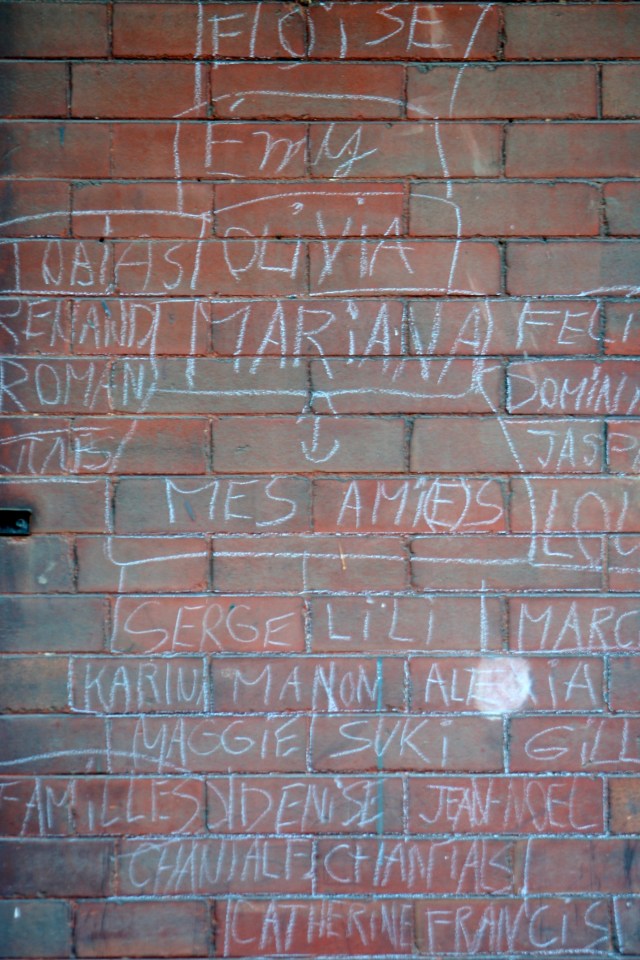 ELOÏSE
Emy
OLiViA
TOBiAS
RENAND MARiANA FELi
ROMAN DOMiNi
JASPA
MES AMi(E)S LOU
SERGE LiLi MARC
KARiN MANON ALEXiA
MAGGIE SUKi GiLL
FAMiLLES DENiSE JEAN-NOEL
CHANTALE CHANTALS
CATHERiNE FRANCiS